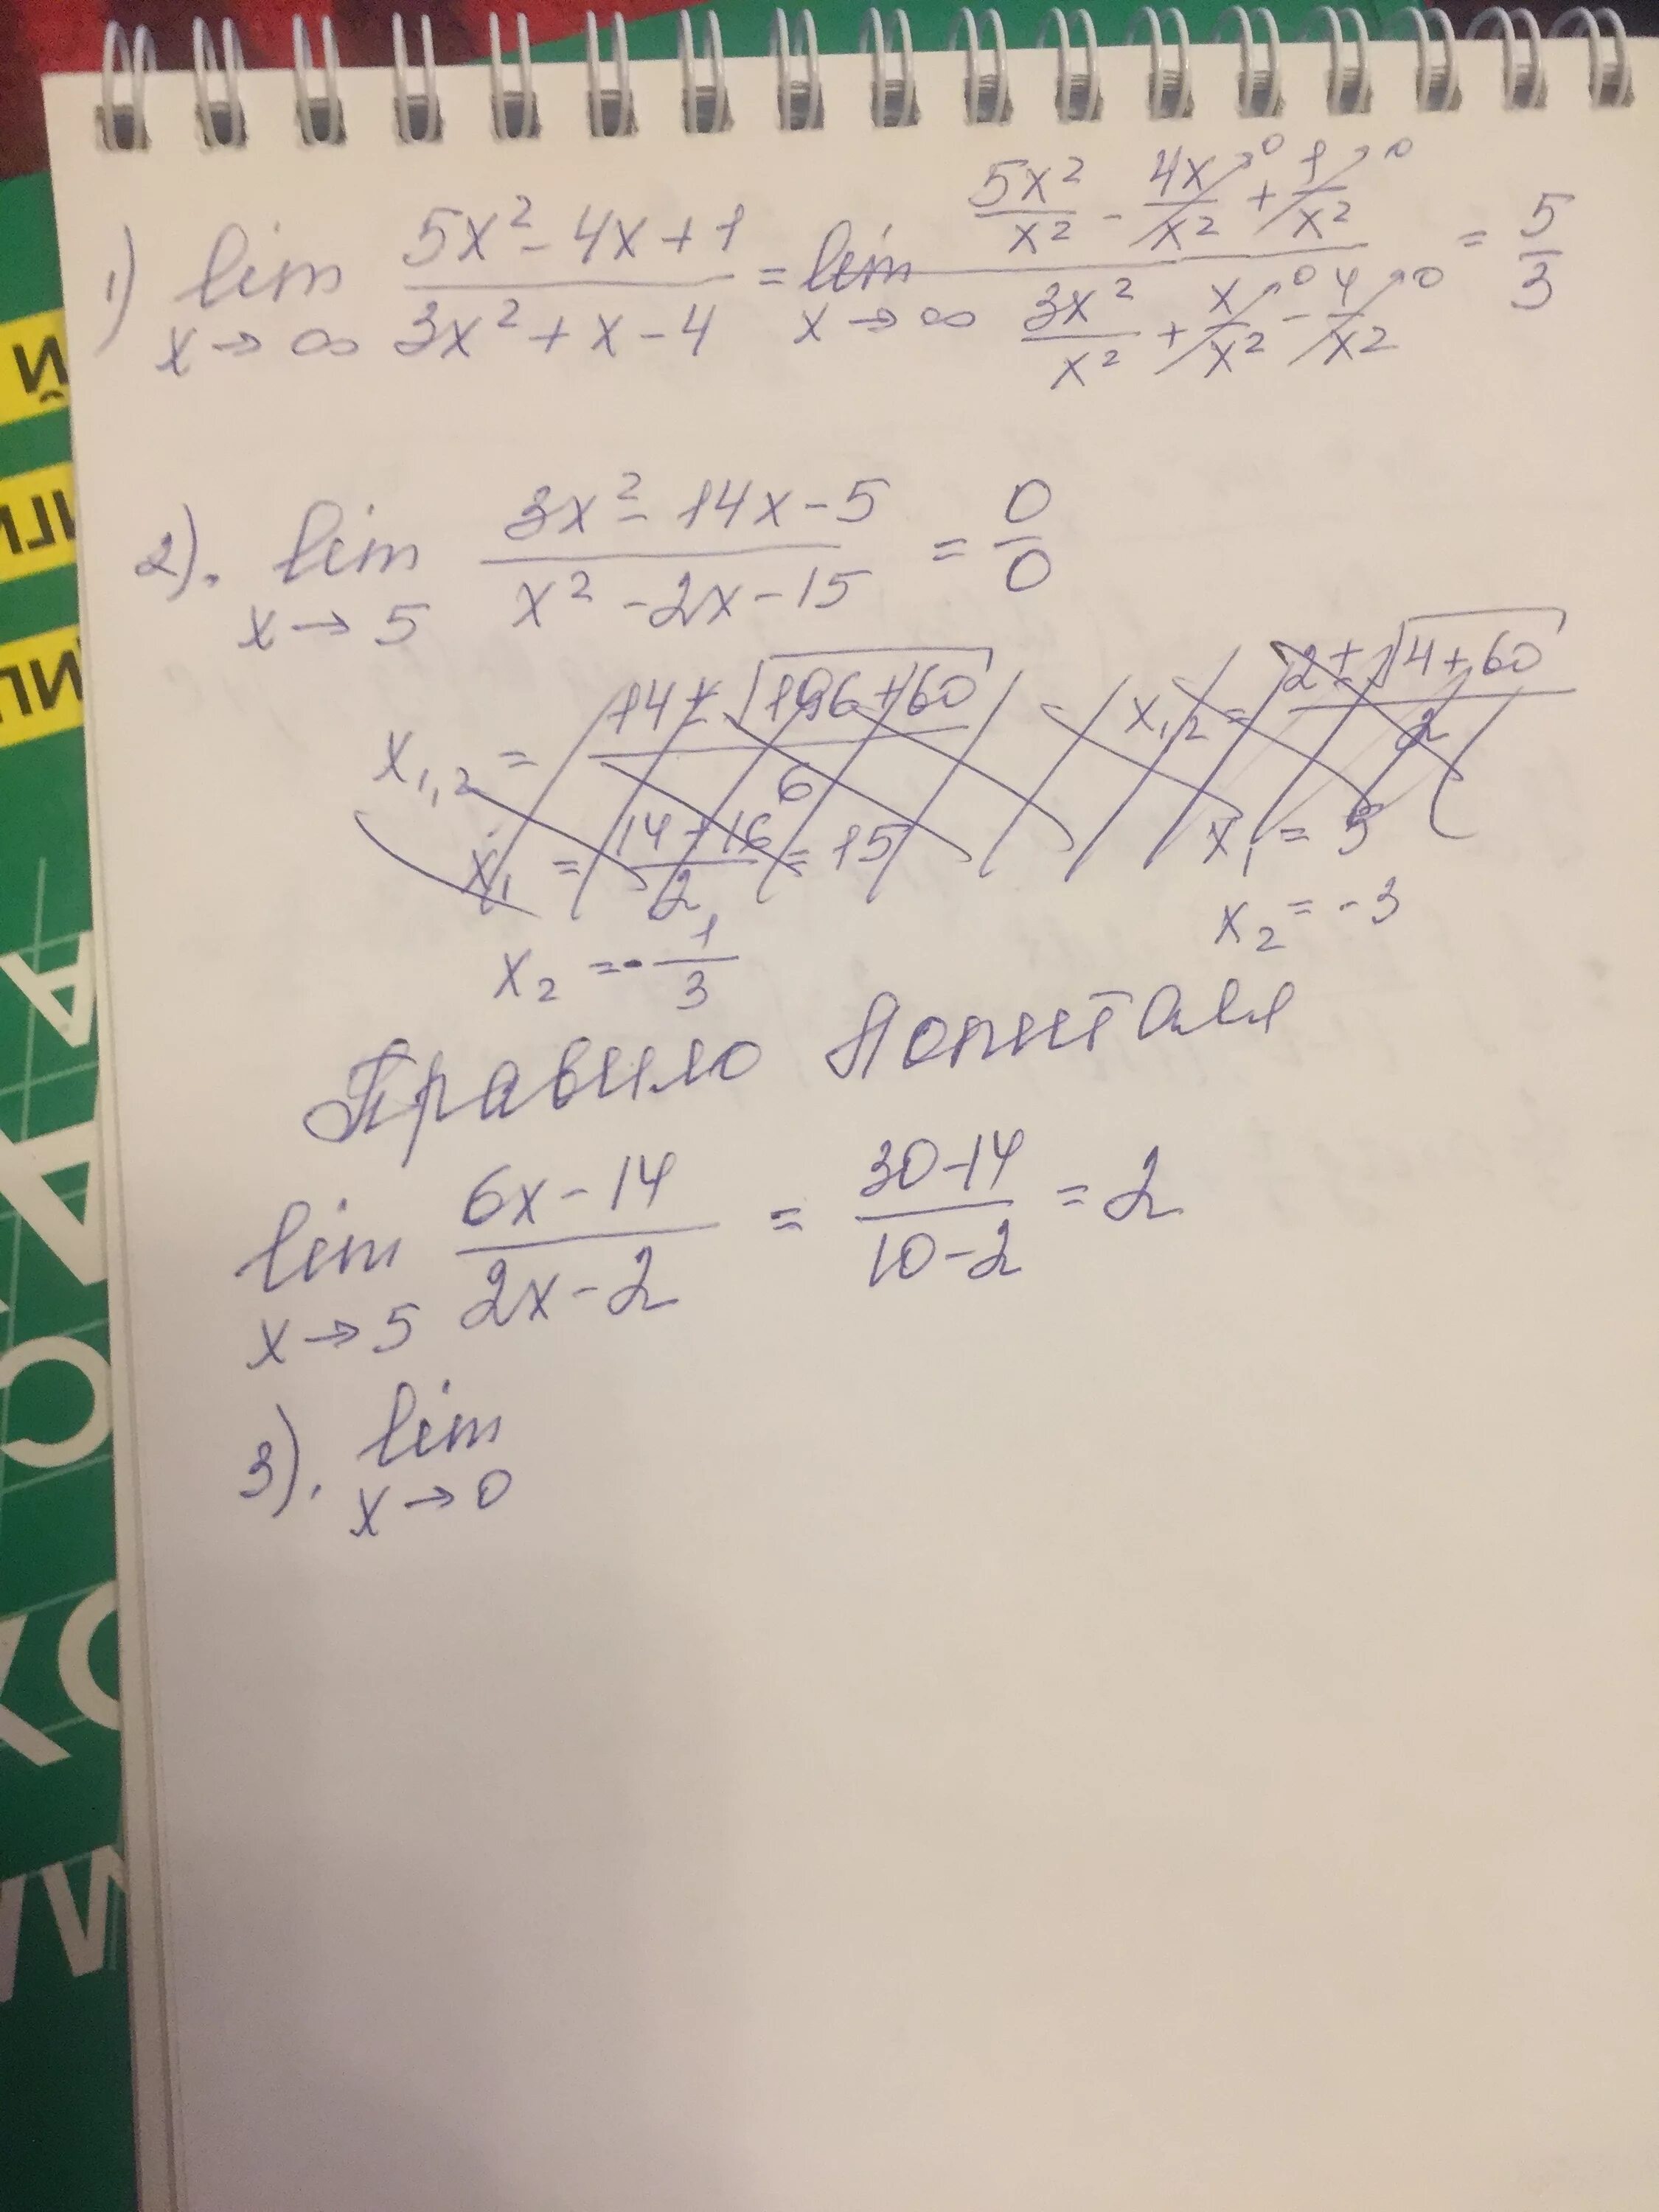 1) lim x→∞ (5x² - 4x + 1)/(3x² + x - 4) = lim x→∞ (5x²/x² - 4x/x²→0 + 1/x²→0)/(3x²/x² + x/x²→0 - 4/x²→0) = 5/3
2). lim x→5 (3x² - 14x - 5)/(x² - 2x - 15) = 0/0
x₁,₂ = (14 ± √(196 + 60))/6 x₁,₂ = (2 ± √(4 + 60))/2
x₁ = (14 + 16)/2 = 15 x₁ = 5
x₂ = -1/3 x₂ = -3
Правило Лопиталя
lim x→5 (6x - 14)/(2x - 2) = (30 - 14)/(10 - 2) = 2
3). lim x→0